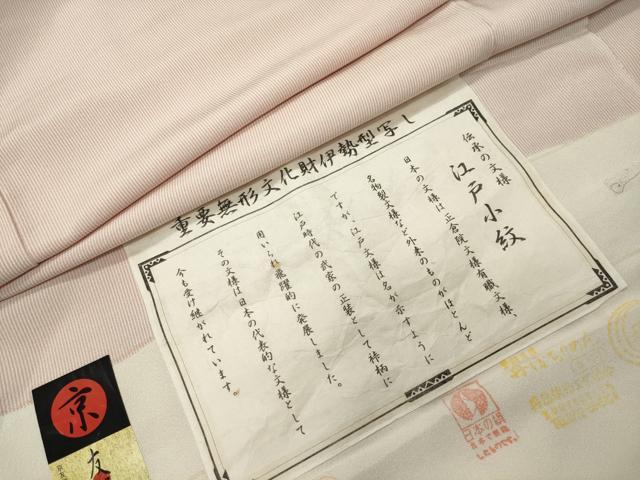 重要無形文化財伊勢型写し
伝承の文様
江戸小紋
日本の文様は正倉院文様有職文様、
名物裂文様など外来のものがほとんど
ですが、江戸文様は名が示すように
江戸時代の武家の正装として裃柄に
用いられ飛躍的に発展しました。
その文様は日本の代表的な文様として
今も受け継がれています。
京
友
日本の絹
日本で製織
したものです。